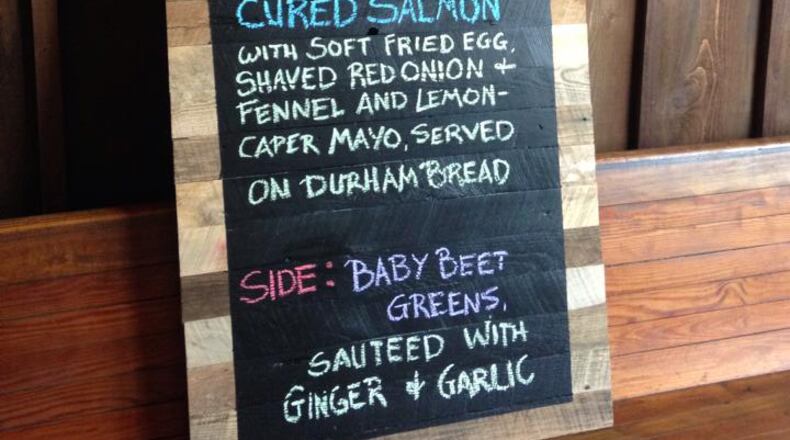 CURED SALMON
WITH SOFT FRIED EGG,
SHAVED RED ONION +
FENNEL AND LEMON-
CAPER MAYO, SERVED
ON DURHAM BREAD
SIDE: BABY BEET
GREENS,
SAUTEED WITH
GINGER + GARLIC